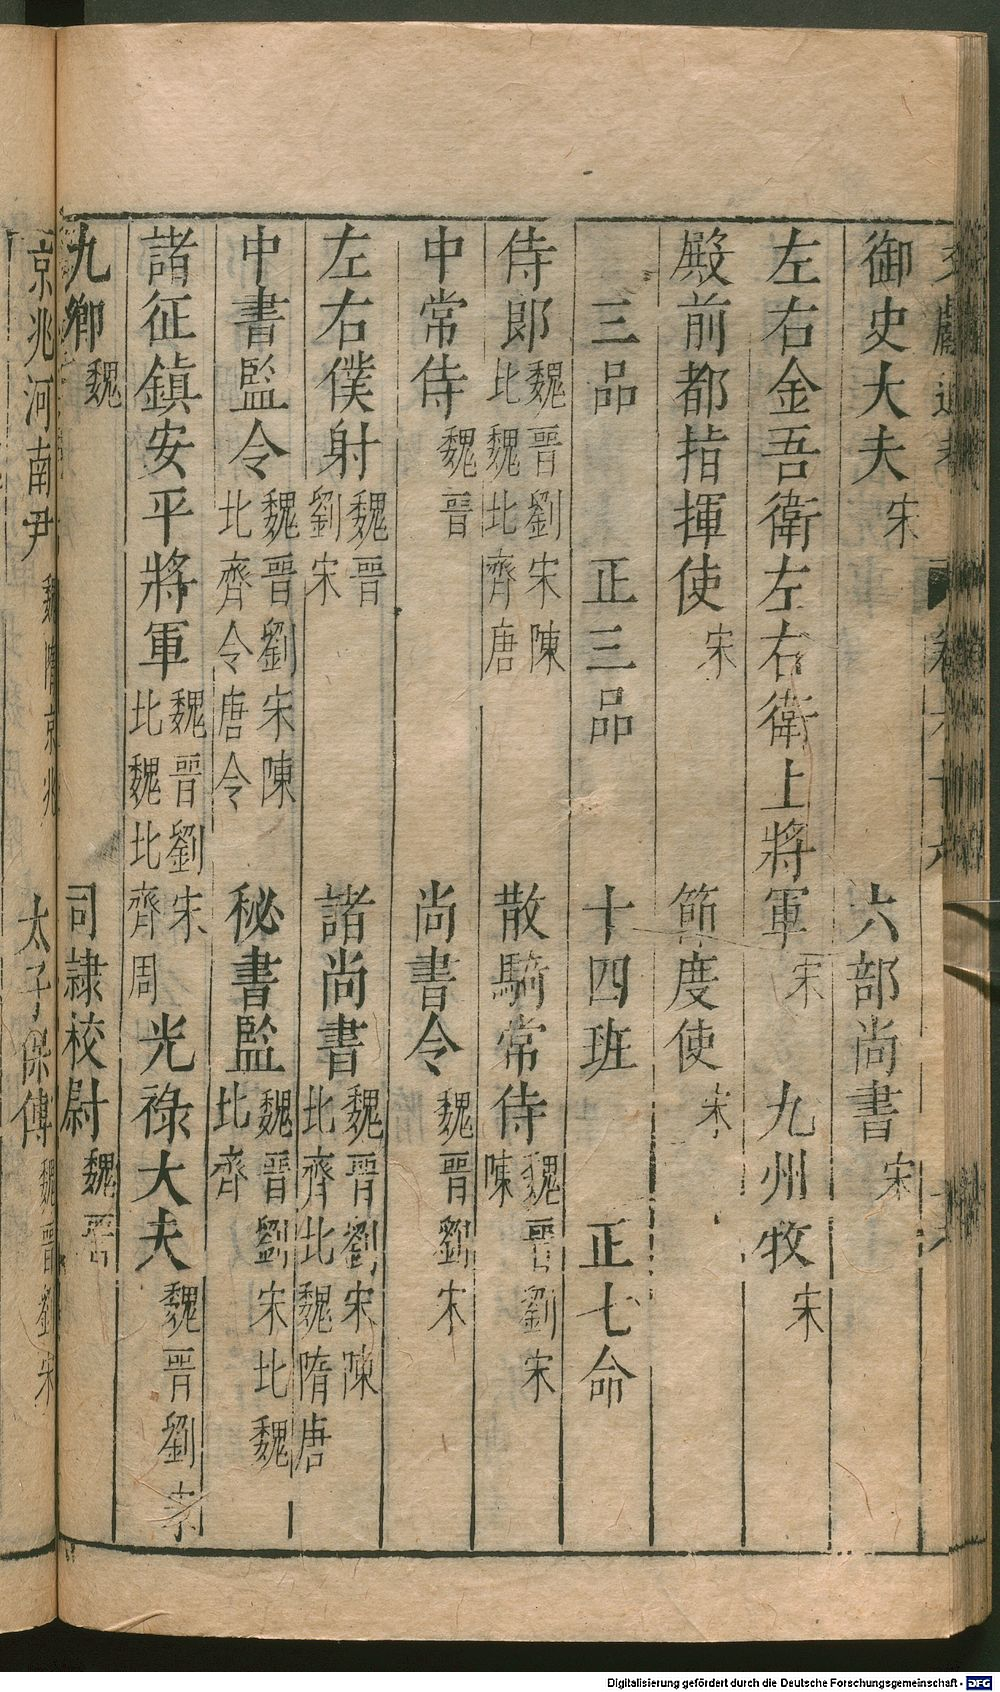 御史大夫宋 六部尚書宋
左右金吾衛左右衛上將軍宋 九州牧宋
殿前都指揮使宋 節度使宋
三品 正三品 十四班 正七命
侍郎魏晉劉宋陳北魏北齊唐 散騎常侍魏晉劉宋陳
中常侍魏晉 尚書令魏晉劉宋
左右僕射魏晉劉宋 諸尚書魏晉劉宋陳北齊北魏隋唐
中書監令魏晉劉宋陳北齊令唐令 秘書監魏晉劉宋北魏北齊
諸征鎮安平將軍魏晉劉宋北魏北齊周 光祿大夫魏晉劉宋
九卿魏 司隷校尉魏晉
京兆河南尹魏隋京兆 太子保傅魏晉劉宋
Digitalisierung gefördert durch die Deutsche Forschungsgemeinschaft - DFG